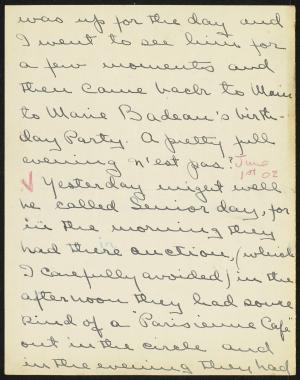 was up for the day and
I went to see him for
a few moments and
then came back to Main
to Marie Badeau's birth-
day Party. A pretty full
evening n'est pas? June
1st 02
√ Yesterday miget well
be called Senior day, for
in the morning they
had there auction, (which
I carefully avoided) in the
afternoon they had some
kind of a "Parisienne Café"
out in the circle and
in the evening they had